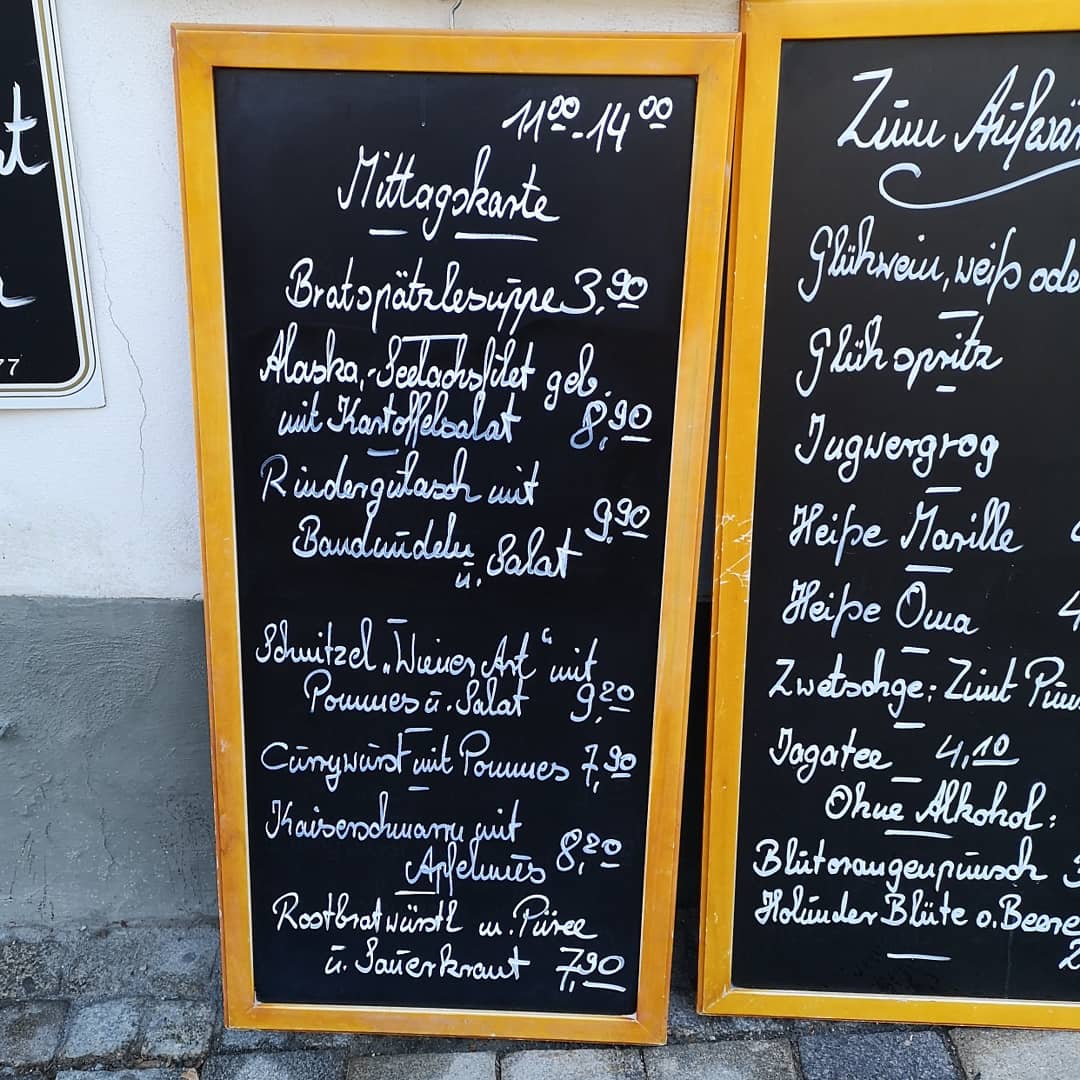 11⁰⁰-14⁰⁰
Mittagskarte
Bratspätzlesuppe 3,90
Alaska-Seelachsfilet geb.
mit Kartoffelsalat 8,90
Rindergulasch mit
Bandnudeln 9,90
u. Salat
Schnitzel „Wiener Art“ mit
Pommes u. Salat 9,20
Currywurst mit Pommes 7,90
Kaiserschmarrn mit
Apfelmus 8,20
Rostbratwürstl m. Püree
u. Sauerkraut 7,90
Zum Aufwär
Glühwein, weiß ode
Glühspritz
Ingwergrog
Heiße Marille
Heiße Oma 4
Zwetschge-Zimt Pun
Jagatee 4,10
Ohne Alkohol:
Blutorangenpunsch 3
Holunder Blüte o. Beere
2
77